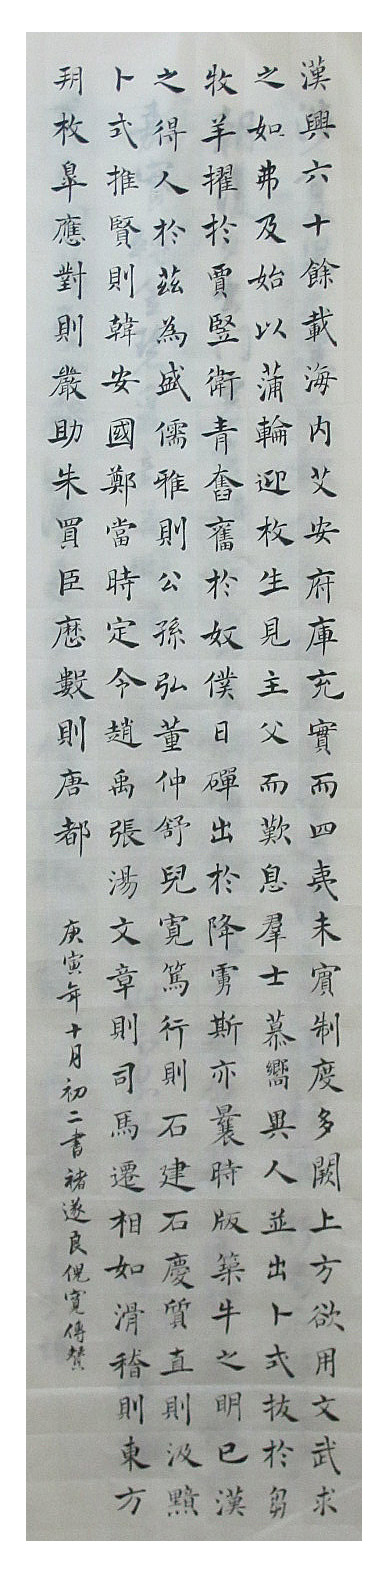 漢興六十餘載海内艾安府庫充實而四夷未賓制度多闕上方欲用文武求
之如弗及始以蒲輪迎枚生見主父而歎息羣士慕嚮異人並出卜式拔於芻
牧羊擢於賈豎衛青奮舊於奴僕日磾出於降虜斯亦曩時版築牛之明已漢
之得人於茲為盛儒雅則公孫弘董仲舒兒寛篤行則石建石慶質直則汲黯
卜式推賢則韓安國鄭當時定令趙禹張湯文章則司馬遷相如滑稽則東方
朔枚皐應對則嚴助朱買臣歴數則唐都
庚寅年十月初二書褚遂良倪寛傳贊